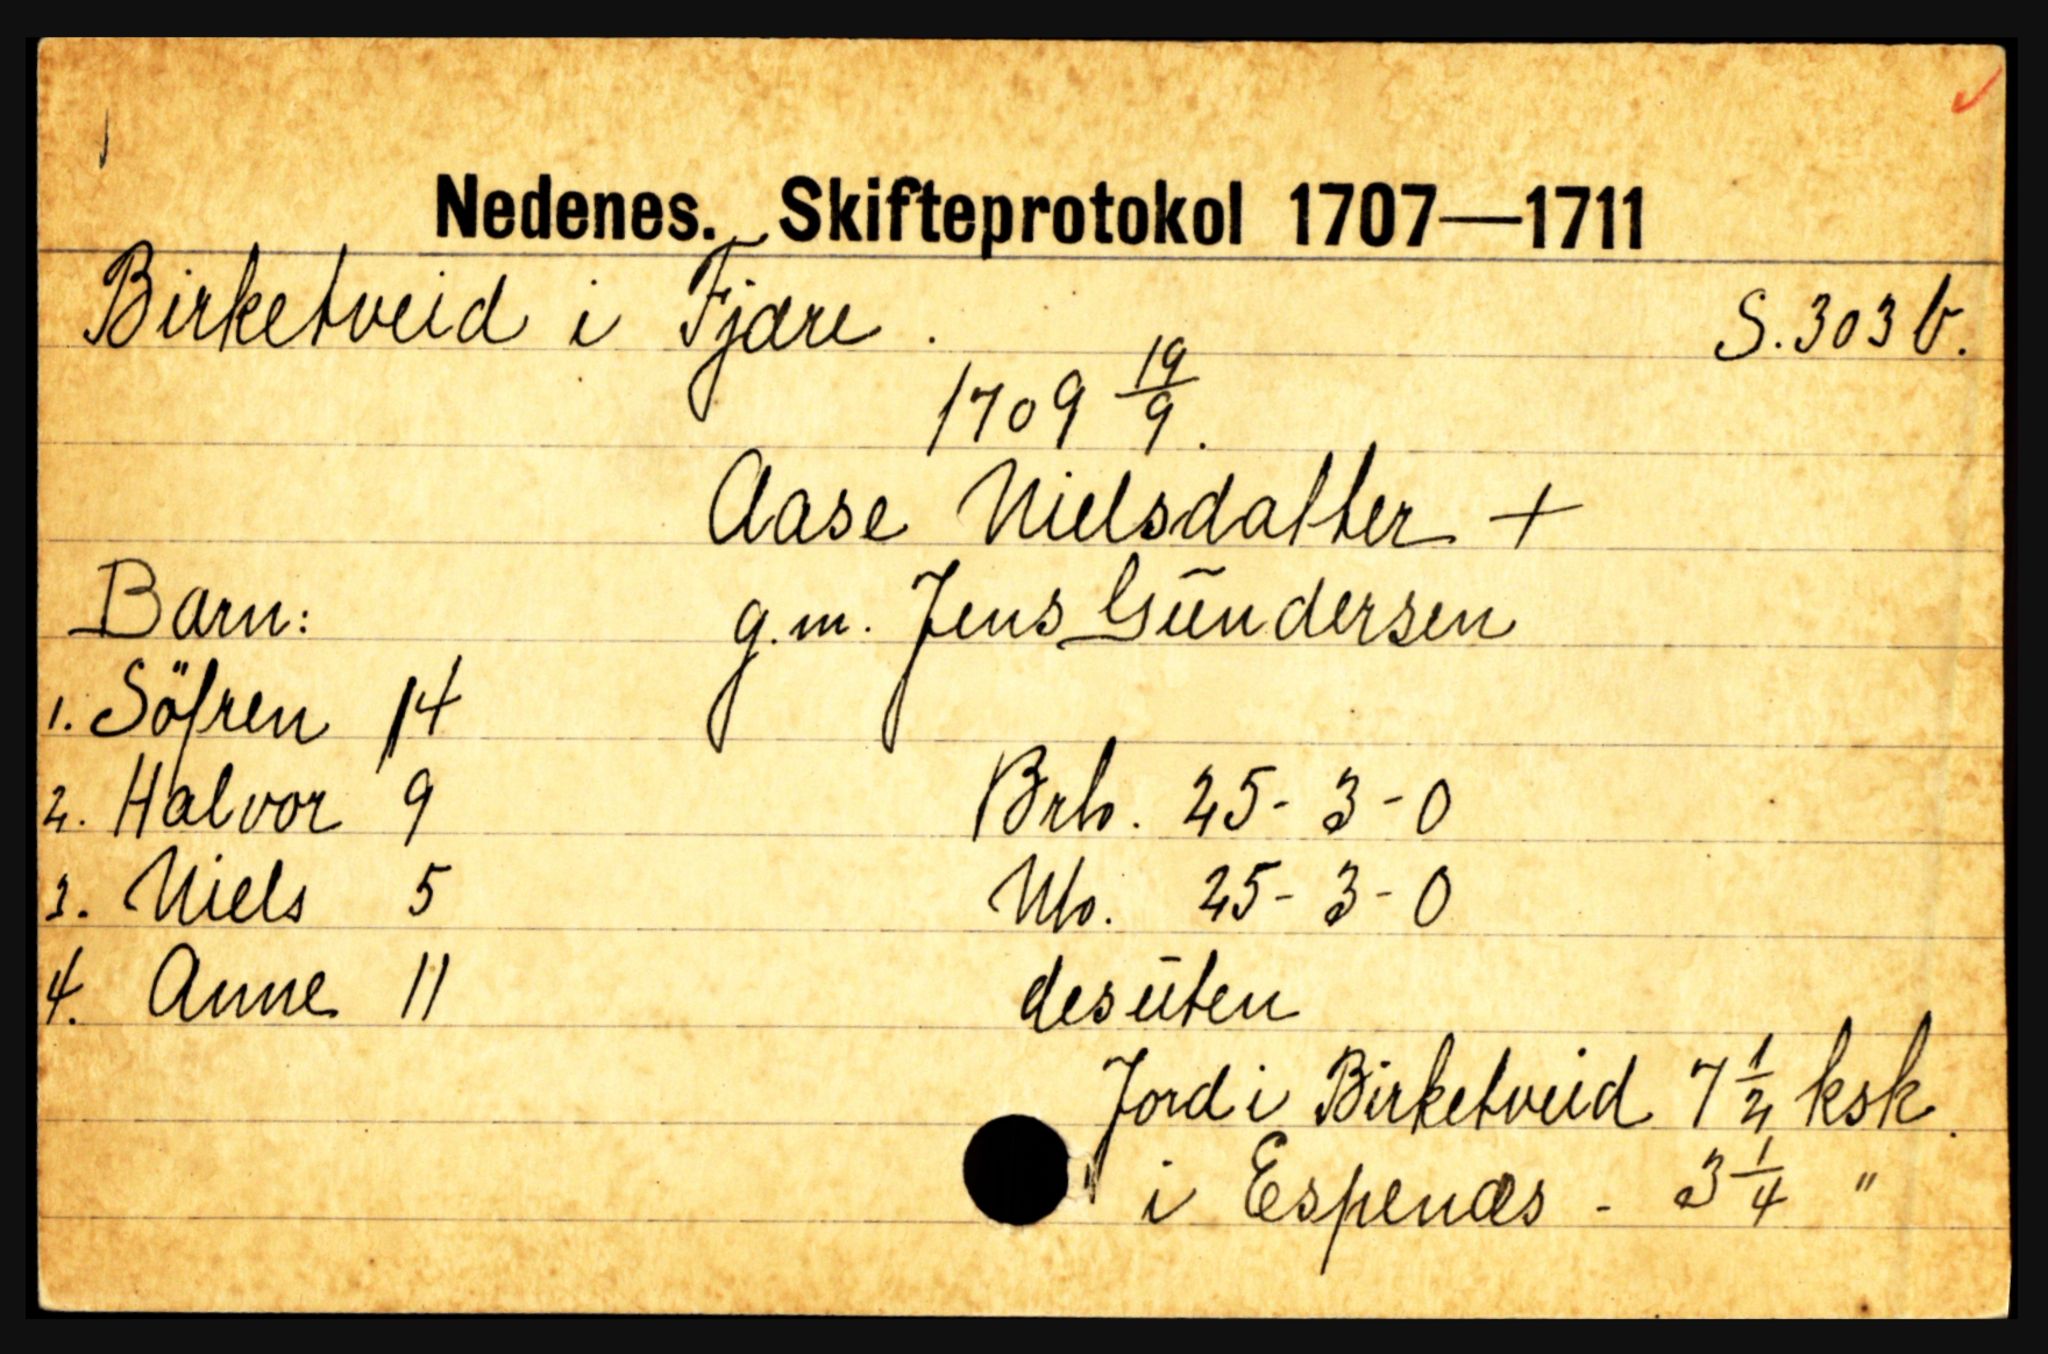 Nedenes. Skifteprotokol 1707—1711
Birketveid i Fjære. S. 303 b.
1709 19/9.
Aase Nielsdatter +
Barn: g.m. Jens Gūndersen
1. Söfren 14
2. Halvor 9 Brb. 25-3-0
3. Niels 5 Nb. 25-3-0
4. Anne 11 desūten
Jord i Birketveid 7 1/2 ksk.
i Espenæs - 3 1/4 "